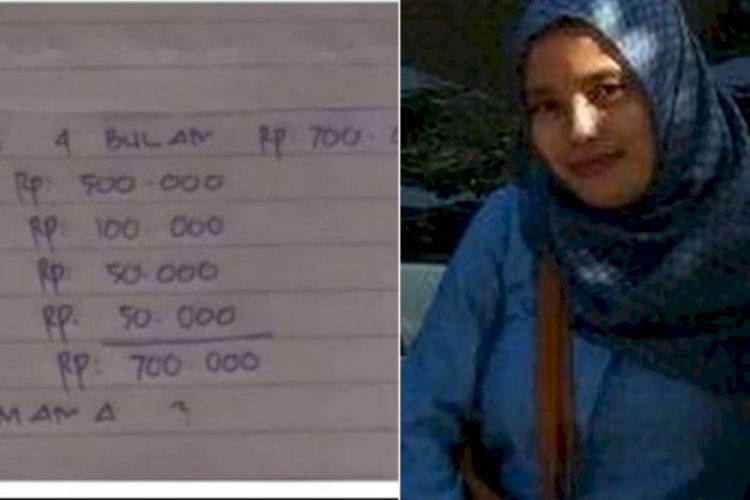 4 BULAN Rp. 700.
Rp. 500.000
Rp. 100.000
Rp. 50.000
Rp. 50.000
Rp. 700.000
MAMA ?